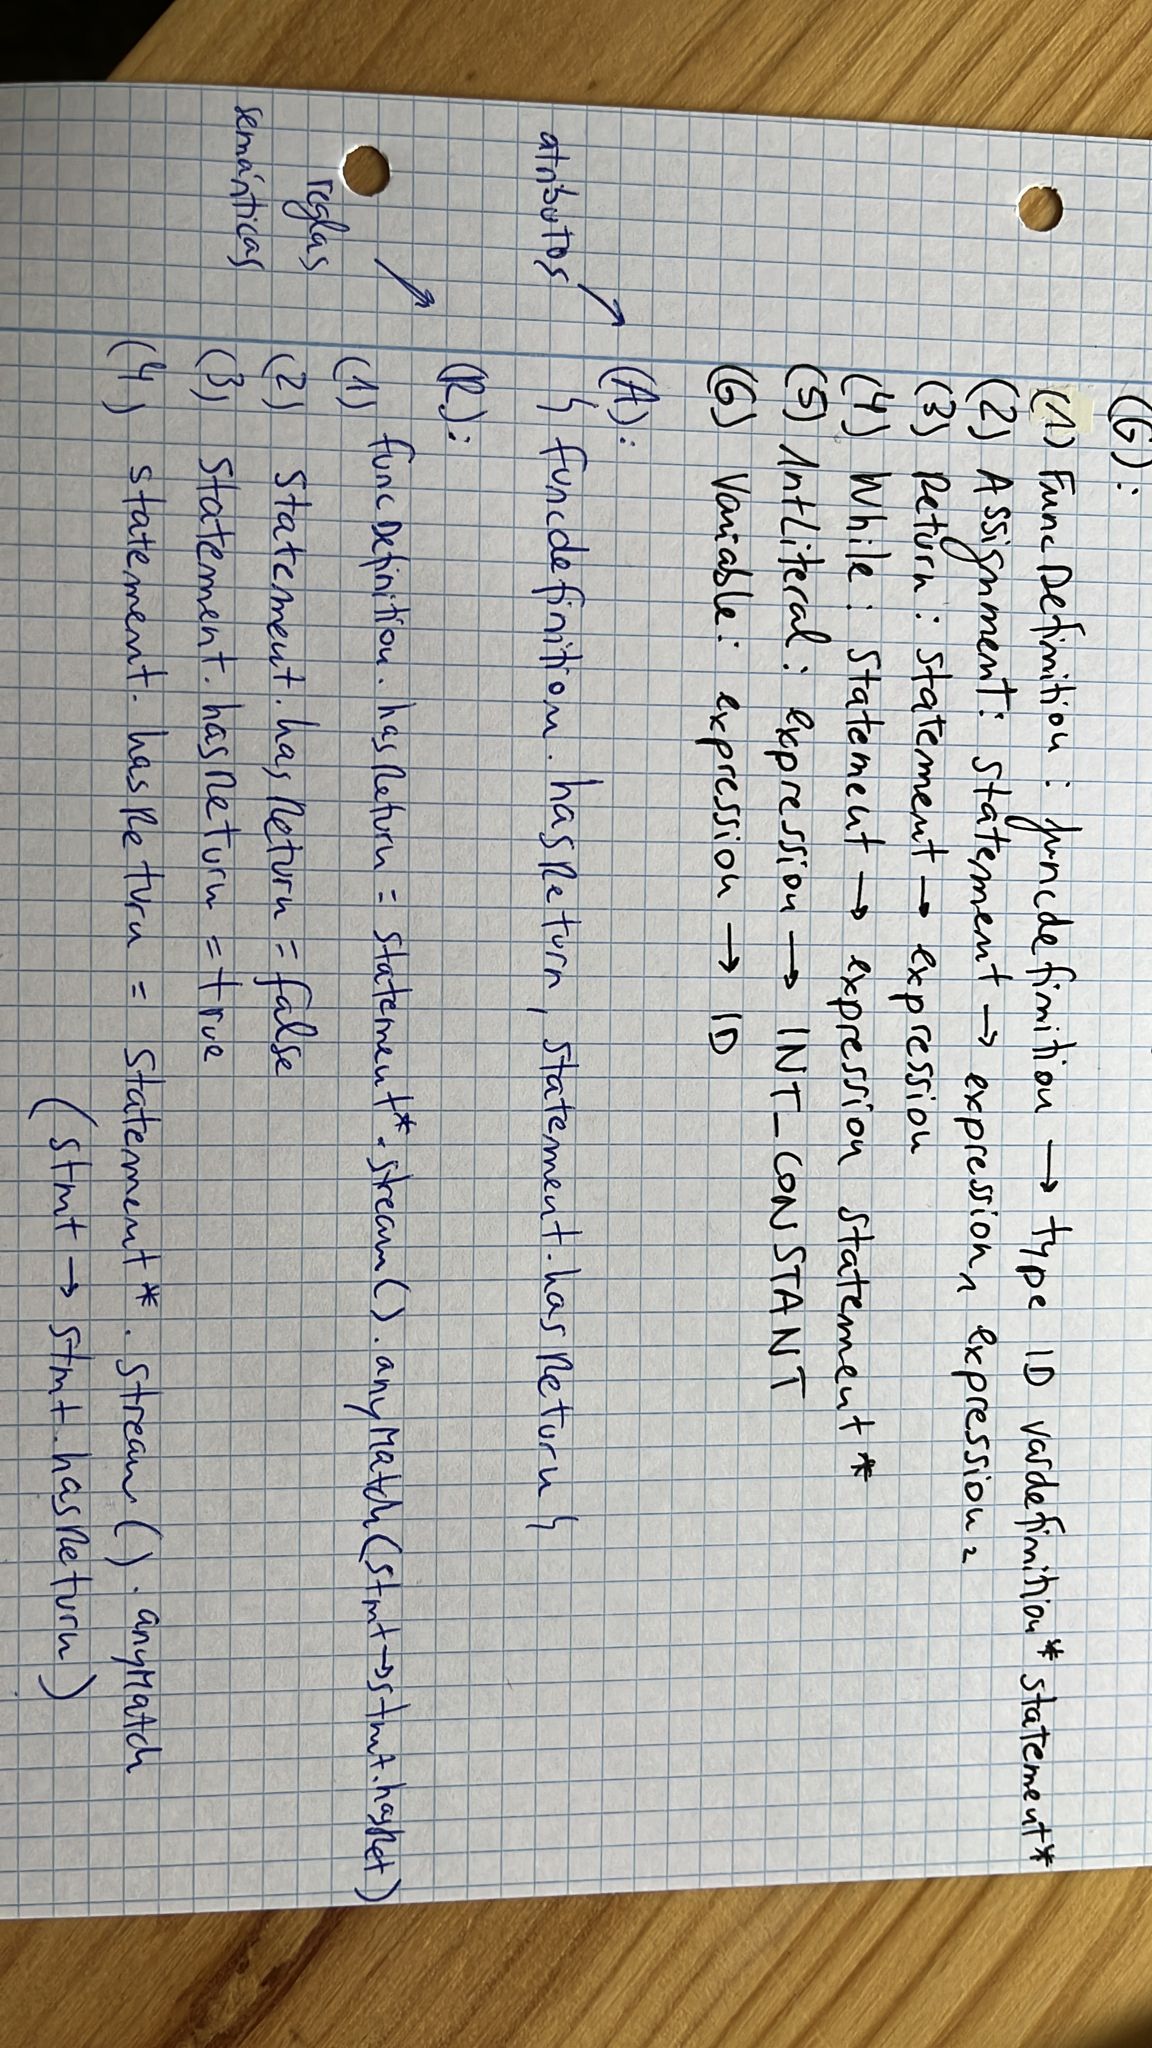 (G):
(1) FuncDefinition : funcdefinition → type ID vardefinition* statement*
(2) Assignment: statement → expression₁ expression₂
(3) Return : statement → expression
(4) While : statement → expression statement*
(5) IntLiteral : expression → INT_CONSTANT
(6) Variable : expression → ID
(A):
atributos
{ funcdefinition.hasReturn, statement.hasReturn }
(R):
(1) funcDefinition.hasReturn = statement*.stream().anyMatch(stmt→stmt.hasRet)
reglas
semánticas
(2) statement.hasReturn = false
(3) statement.hasReturn = true
(4) statement.hasReturn = statement*.stream().anyMatch
(stmt → stmt.hasReturn)